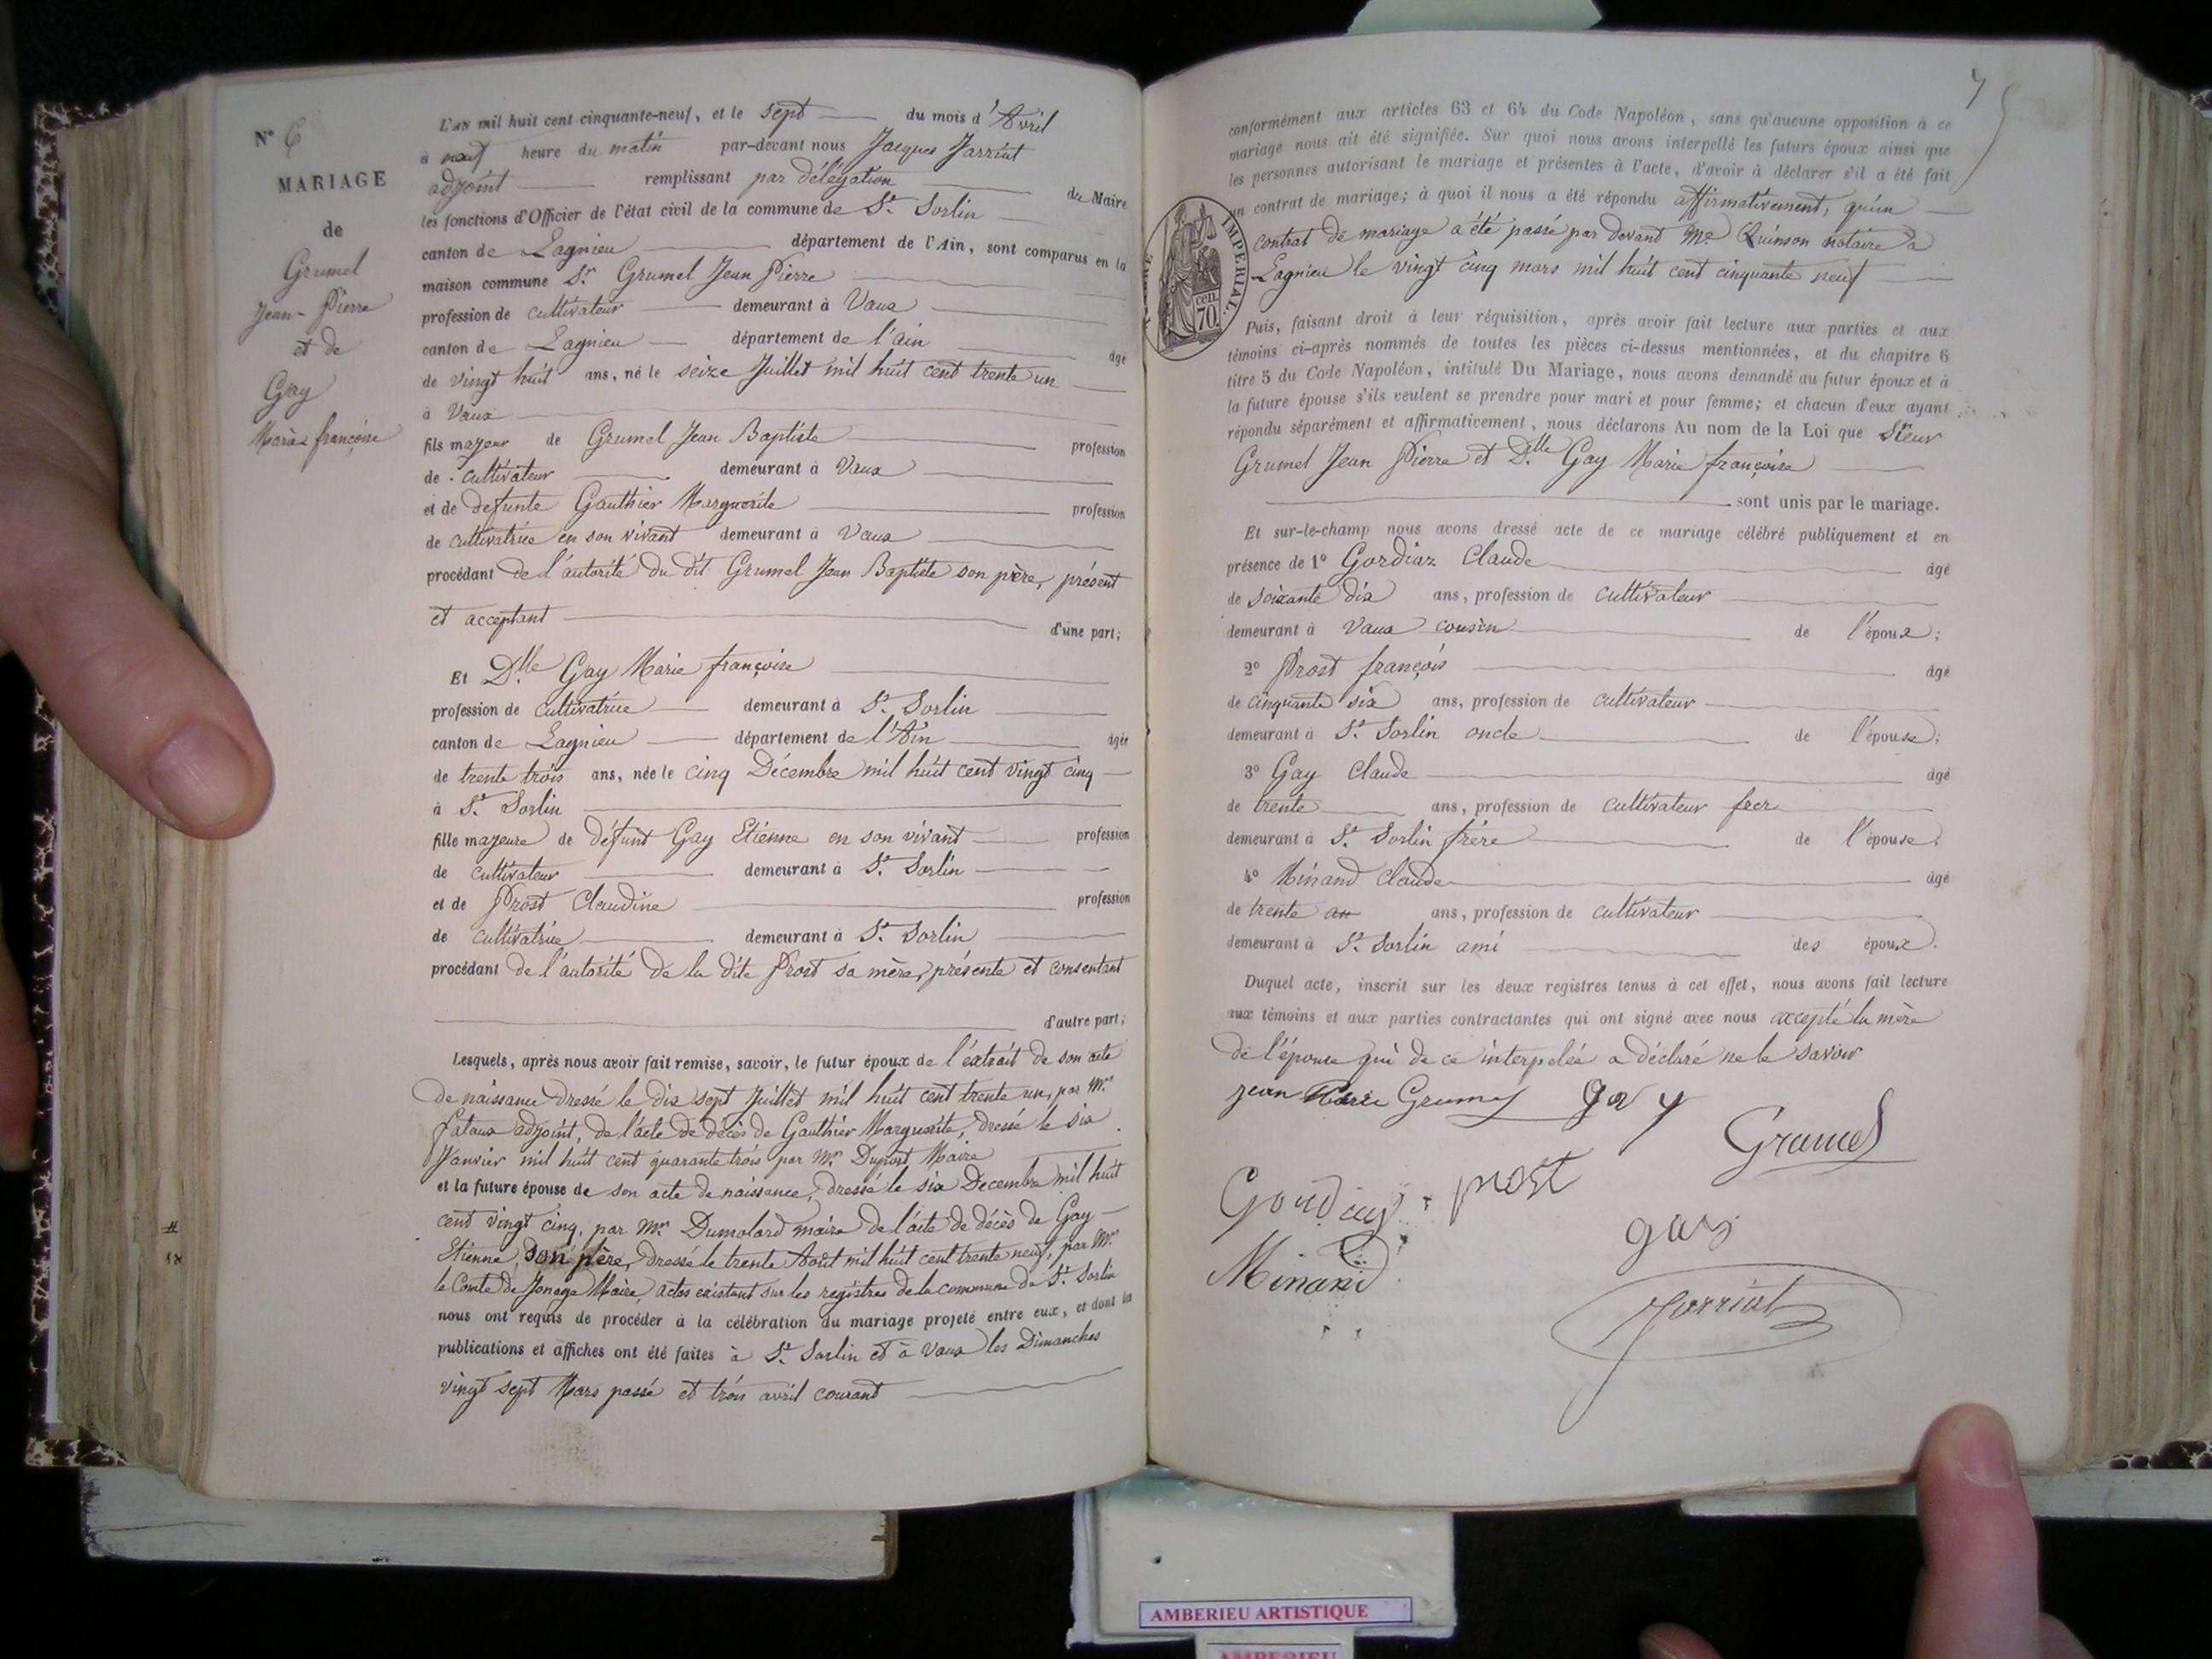 N° 6
MARIAGE
de
Grumel
Jean-Pierre
et de
Gay
Marie françoise
L'AN mil huit cent cinquante-neuf, et le sept du mois d'Avril
à neuf heure du matin par-devant nous Jacques Jarriat
adjoint remplissant par délégation du Maire
les fonctions d'Officier de l'état civil de la commune de St. Sorlin
canton de Lagnieu département de l'Ain, sont comparus en la
maison commune Sr. Grumel Jean Pierre
profession de cultivateur demeurant à Vaux
canton de Lagnieu département de l'ain âgé
de vingt huit ans, né le seize Juillet mil huit cent trente un
à Vaux
fils majeur de Grumel Jean Baptiste profession
de cultivateur demeurant à Vaux
et de defunte Gauthier Marguerite profession
de cultivatrice en son vivant demeurant à Vaux
procédant de l'autorité du dit Grumel Jean Baptiste son père, présent
et acceptant d'une part;
Et Dlle Gay Marie françoise
profession de cultivatrice demeurant à St. Sorlin
canton de Lagnieu département de l'Ain âgée
de trente trois ans, née le cinq Décembre mil huit cent vingt cinq
à St. Sorlin
fille majeure de défunt Gay Etienne en son vivant profession
de cultivateur demeurant à St. Sorlin
et de Prost Claudine profession
de cultivatrice demeurant à St. Sorlin
procédant de l'autorité de la dite Prost sa mère, présente et consentant
d'autre part;
Lesquels, après nous avoir fait remise, savoir, le futur époux de l'extrait de son acte
de naissance dressé le dix sept Juillet mil huit cent trente un, par Mr.
adjoint, de l'acte de décès de Gauthier Marguerite, dressé le six
Janvier mil huit cent quarante trois par Mr. Duport Maire
et la future épouse de son acte de naissance, dressé le six Decembre mil huit
cent vingt cinq, par Mr. Dumolard maire de l'acte de décès de Gay
Etienne, son père, dressé le trente Août mil huit cent trente neuf, par Mr.
le Comte de Jonage Maire, actes existant sur les registres de la commune de St. Sorlin
nous ont requis de procéder à la célébration du mariage projeté entre eux, et dont les
publications et affiches ont été faites à St. Sorlin et à Vaux les Dimanches
vingt sept Mars passé et trois avril courant
conformément aux articles 63 et 64 du Code Napoléon, sans qu'aucune opposition à ce
mariage nous ait été signifiée. Sur quoi nous avons interpellé les futurs époux ainsi que
les personnes autorisant le mariage et présentes à l'acte, d'avoir à déclarer s'il a été fait
un contrat de mariage; à quoi il nous a été répondu affirmativement, qu'un
contrat de mariage a été passé par devant Me. Quinson notaire à
Lagnieu le vingt cinq mars mil huit cent cinquante neuf
IMPERIAL.
cen.
70.
Puis, faisant droit à leur réquisition, après avoir fait lecture aux parties et aux
témoins ci-après nommés de toutes les pièces ci-dessus mentionnées, et du chapitre 6
titre 5 du Code Napoléon, intitulé Du Mariage, nous avons demandé au futur époux et à
la future épouse s'ils veulent se prendre pour mari et pour femme; et chacun d'eux ayant
répondu séparément et affirmativement, nous déclarons Au nom de la Loi que Sieur
Grumel Jean Pierre et Dlle Gay Marie françoise
sont unis par le mariage.
Et sur-le-champ nous avons dressé acte de ce mariage célébré publiquement et en
présence de 1° Gordiaz Claude âgé
de soixante dix ans, profession de cultivateur
demeurant à Vaux cousin de l'époux;
2° Prost françois âgé
de cinquante six ans, profession de cultivateur
demeurant à St. Sorlin oncle de l'épouse;
3° Gay Claude âgé
de trente ans, profession de cultivateur frer
demeurant à St. Sorlin frère de l'épouse;
4° Minand Claude âgé
de trente an ans, profession de cultivateur
demeurant à St. Sorlin ami des époux.
Duquel acte, inscrit sur les deux registres tenus à cet effet, nous avons fait lecture
aux témoins et aux parties contractantes qui ont signé avec nous excepté la mère
de l'épouse qui de ce interpelée a déclaré ne le savoir
jean Pierre Grumel gay
Grumel
Gordiaz prost
gay
Minand
Jarriat
AMBERIEU ARTISTIQUE
AMBERIEU